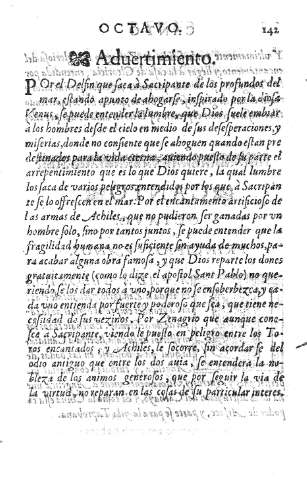 OCTAVO. 142
Aduertimiento.
POr el Delfin que saca à Sacripante de los profundos del
mar, estando apunto de ahogarse, inspirado por la diosa
Venus, se puede entender la lumbre, que Dios suele embiar
à los hombres desde el cielo en medio de sus desesperaciones, y
miserias, donde no consiente que se ahoguen quando estan pre
destinados para la vida eterna, auiendo puesto de su parte el
arrepentimiento que es lo que Dios quiere, la qual lumbre
los saca de varios peligros entendidos por los que à Sacripan
te se lo offrescen en el mar. Por el encantamento artificioso de
las armas de Achiles, que no pudieron ser ganadas por vn
hombre solo, sino por tantos juntos, se puede entender que la
fragilidad humana no es suficiente sin ayuda de muchos, pa
ra acabar alguna obra famosa, y que Dios reparte los dones
gratuitamente (como lo dize el apostol Sant Pablo) no que-
riendo se los dar todos a vno, porque no se ensoberbezca, y ca
da vno entienda por fuerte y poderoso que sea, que tiene ne-
cessidad de sus vezinos. Por Zenagrio que aunque cono-
ce a Sacripante, viendo le puesto en peligro entre los To-
ros encantados, y Achiles, le socorre, sin acordar se del
odio antiguo que entre los dos auia, se entenderà la no-
bleza de los animos generosos, que por seguir la via de
la virtud, no reparan, en las cosas de su particular interes.